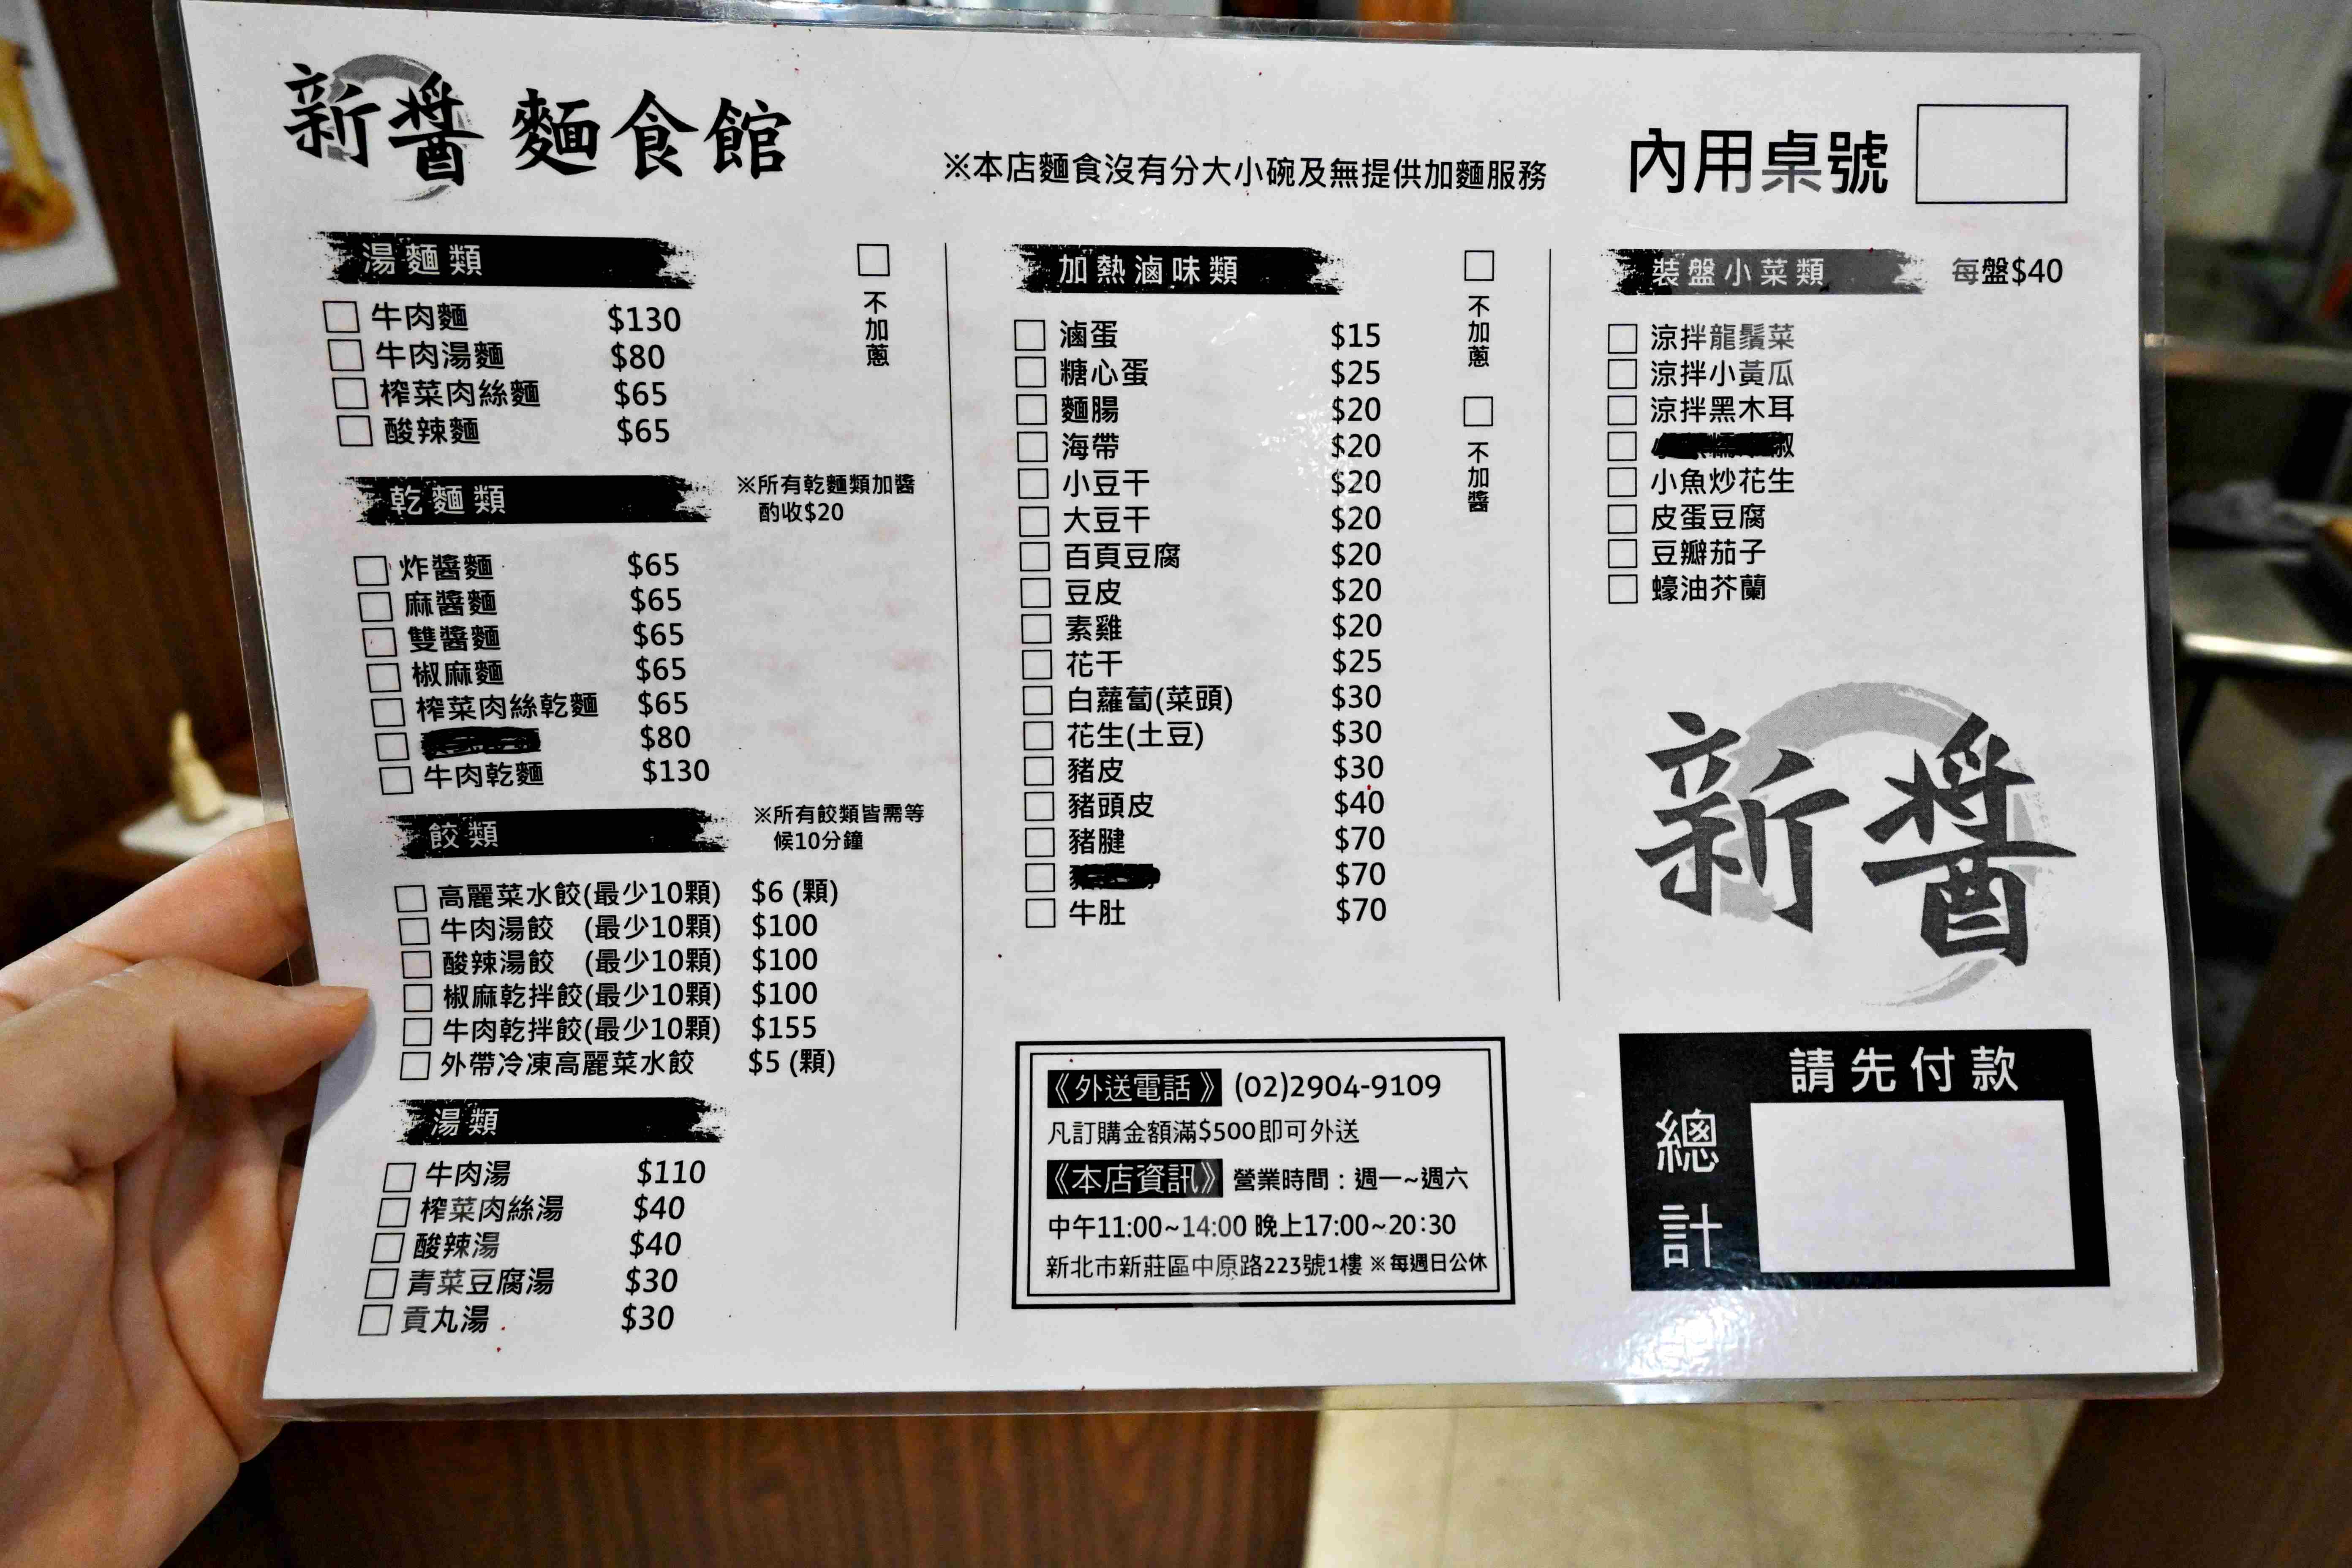 新醬 麵食館
※本店麵食沒有分大小碗及無提供加麵服務
內用桌號
湯麵類
不加蔥
牛肉麵 $130
牛肉湯麵 $80
榨菜肉絲麵 $65
酸辣麵 $65
乾麵類
※所有乾麵類加醬
酌收$20
炸醬麵 $65
麻醬麵 $65
雙醬麵 $65
椒麻麵 $65
榨菜肉絲乾麵 $65
$80
牛肉乾麵 $130
餃類
※所有餃類皆需等
候10分鐘
高麗菜水餃(最少10顆) $6 (顆)
牛肉湯餃 (最少10顆) $100
酸辣湯餃 (最少10顆) $100
椒麻乾拌餃(最少10顆) $100
牛肉乾拌餃(最少10顆) $155
外帶冷凍高麗菜水餃 $5 (顆)
湯類
牛肉湯 $110
榨菜肉絲湯 $40
酸辣湯 $40
青菜豆腐湯 $30
貢丸湯 $30
加熱滷味類
不加蔥
不加醬
滷蛋 $15
糖心蛋 $25
麵腸 $20
海帶 $20
小豆干 $20
大豆干 $20
百頁豆腐 $20
豆皮 $20
素雞 $20
花干 $25
白蘿蔔(菜頭) $30
花生(土豆) $30
豬皮 $30
豬頭皮 $40
豬腱 $70
$70
牛肚 $70
《外送電話》 (02)2904-9109
凡訂購金額滿$500即可外送
《本店資訊》 營業時間：週一~週六
中午11:00~14:00 晚上17:00~20:30
新北市新莊區中原路223號1樓 ※每週日公休
裝盤小菜類 每盤$40
涼拌龍鬚菜
涼拌小黃瓜
涼拌黑木耳
椒
小魚炒花生
皮蛋豆腐
豆瓣茄子
蠔油芥蘭
新醬
請先付款
總計